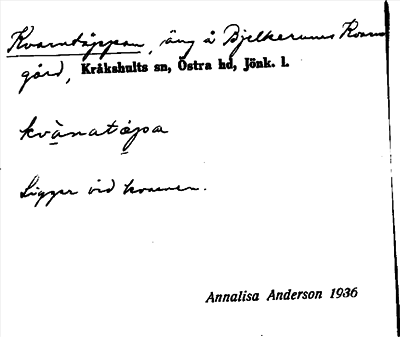 Kvarntäppan, äng å Bjelkerums Kvarn
gård, Kråkshults sn, Östra hd, Jönk. l.
kvànatǽpa
Ligger vid kvarnen.
Annalisa Anderson 1936